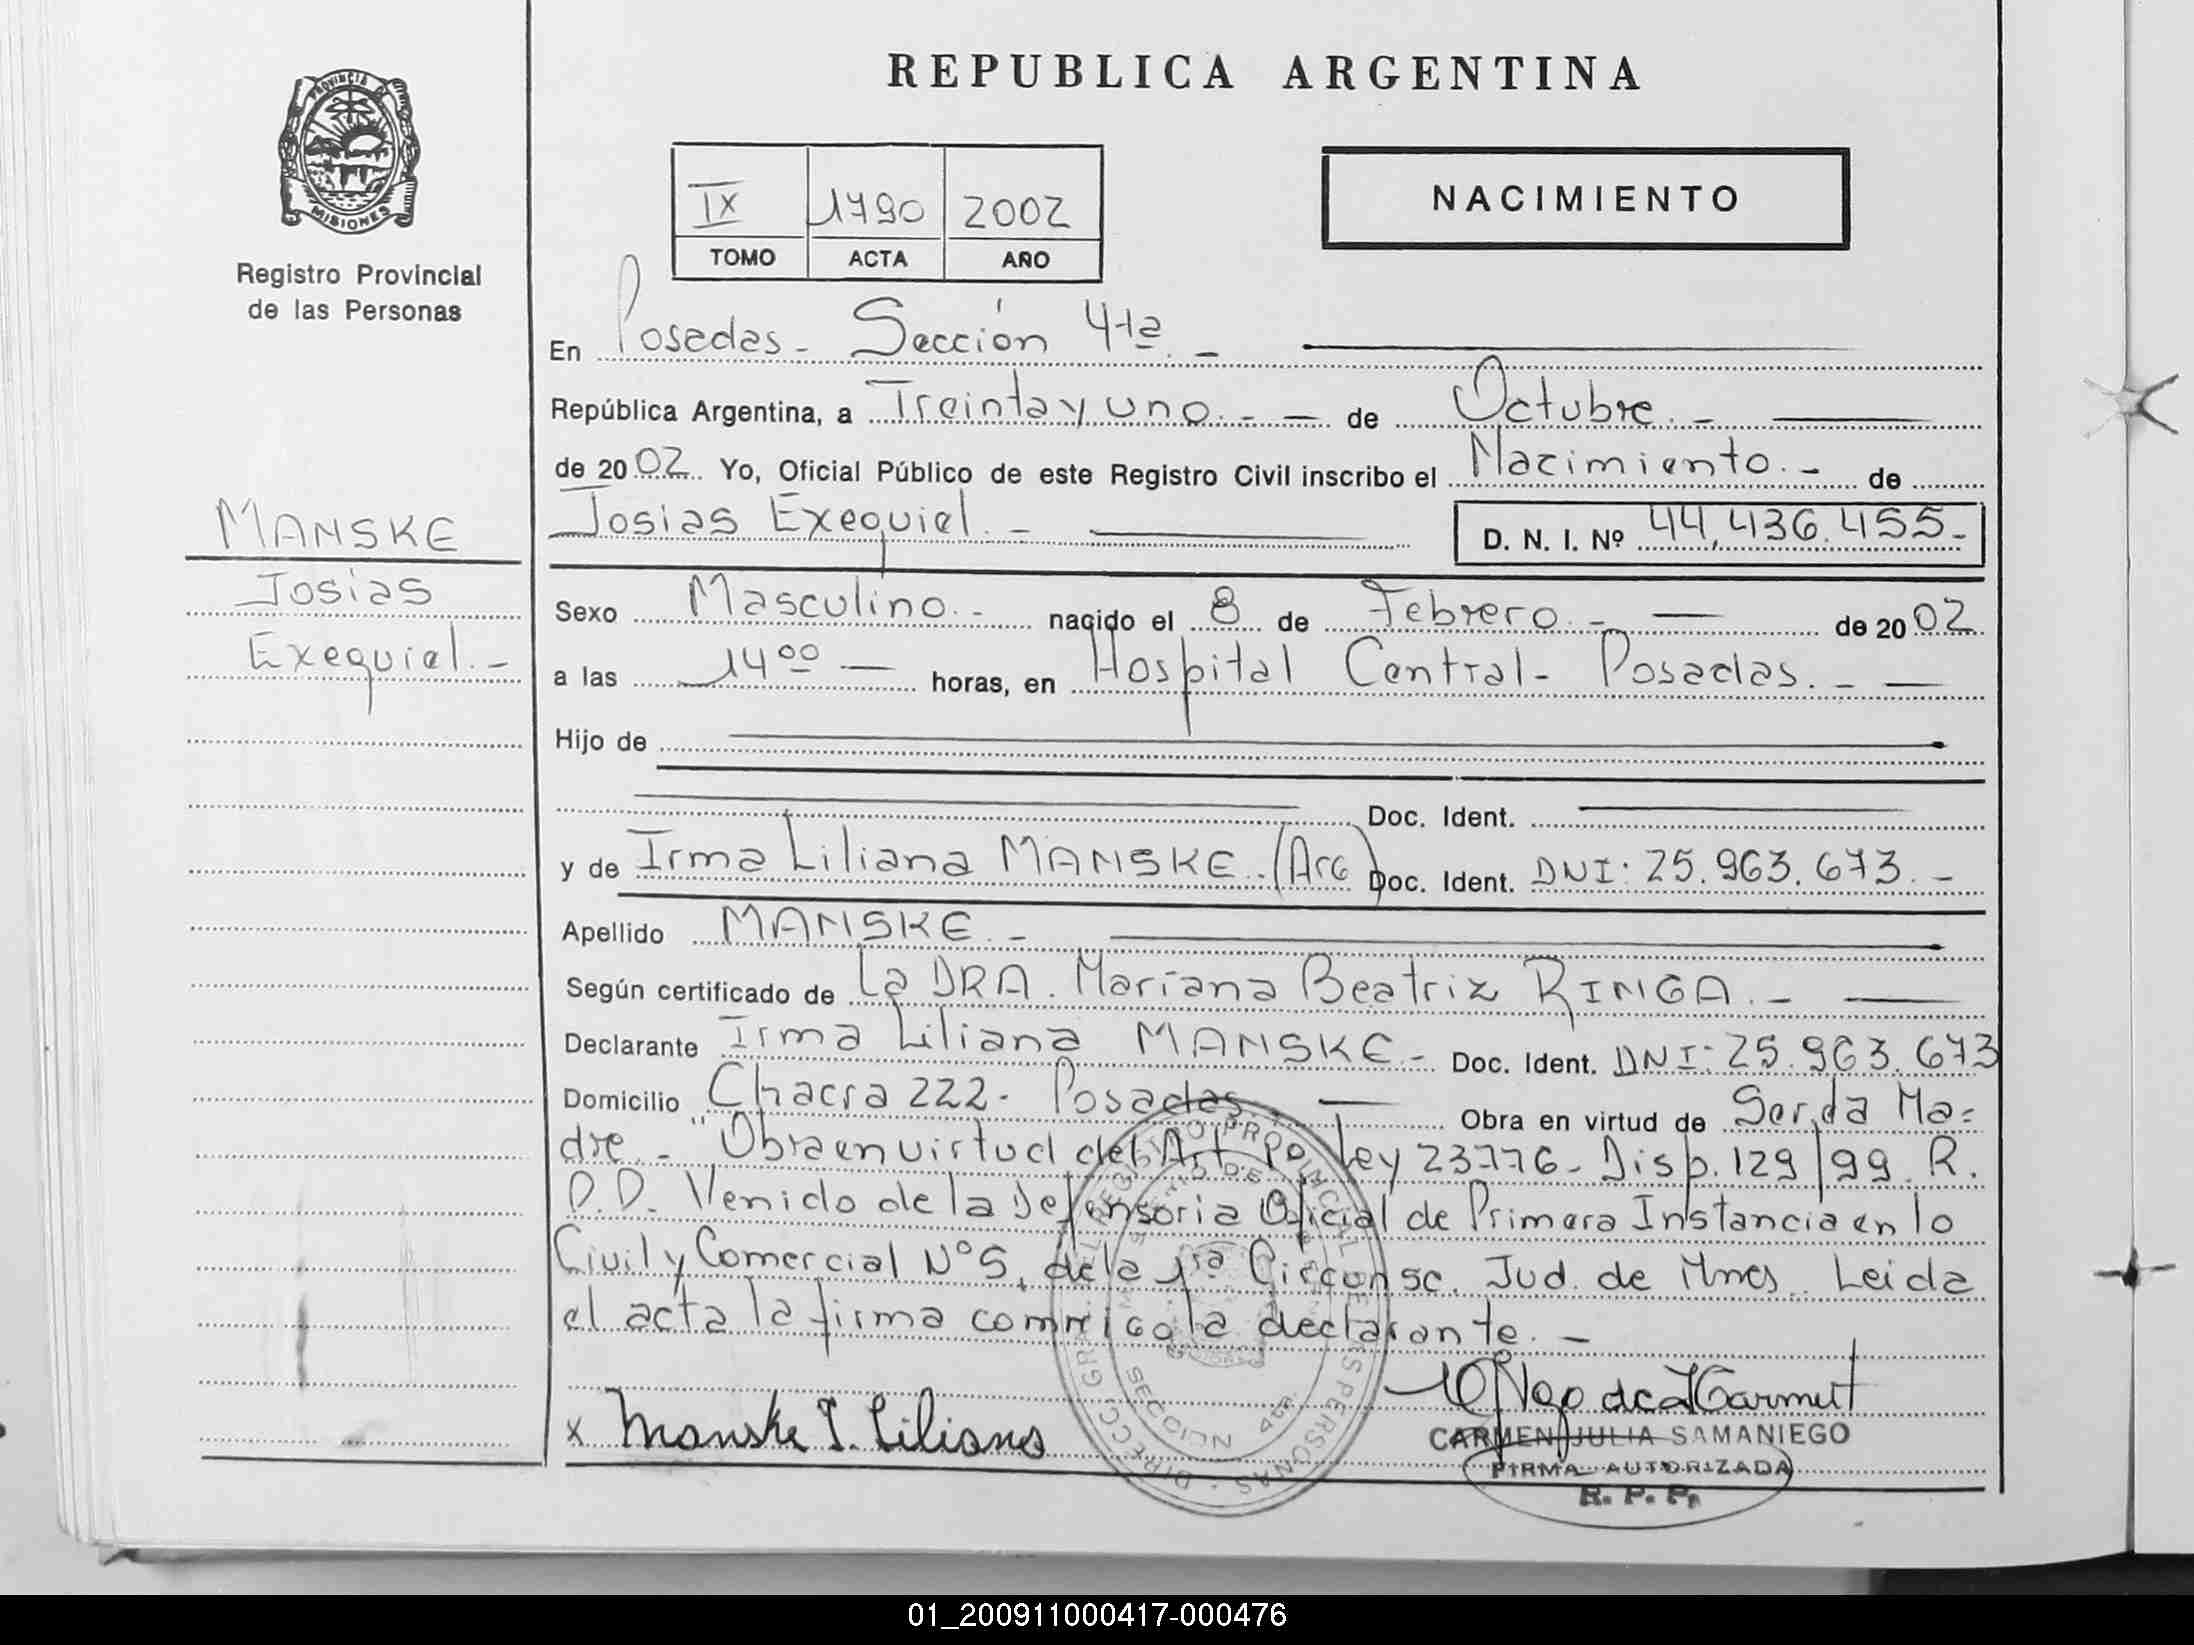 REPUBLICA ARGENTINA
PROVINCIA DE
MISIONES
Registro Provincial
de las Personas
IX 1790 2002
TOMO ACTA AÑO
NACIMIENTO
En Posadas - Sección 4ta. -
República Argentina, a Treinta y uno. - de Octubre. -
de 2002. Yo, Oficial Público de este Registro Civil inscribo el Nacimiento. - de
MANSKE
Josias Exequiel. -
D. N. I. Nº 44,436.455-
Josias
Exequiel. -
Sexo Masculino. - nacido el 8 de Febrero. - de 2002
a las 14 00 horas, en Hospital Central - Posadas. -
Hijo de
Doc. Ident.
y de Irma Liliana MANSKE. (Arg) Doc. Ident. DNI: 25.963.673. -
Apellido MANSKE. -
Según certificado de La DRA. Mariana Beatriz RINGA. -
Declarante Irma Liliana MANSKE. - Doc. Ident. DNI: 25.963.673
Domicilio Chacra 222 - Posadas. - Obra en virtud de Ser la Ma=
dre. - "Obra en virtud del Art. Ley 23776 - Disp. 129/99. R.
P.P. Venido de la Defensoria Oficial de Primera Instancia en lo
Civil y Comercial Nº 5, de la 1ra Circunsc. Jud. de Mnes. Leida
el acta la firma conmigo la declarante. -
x Manske I. Liliana
CARMEN JULIA SAMANIEGO
FIRMA AUTORIZADA
R. P. P.
01_200911000417-000476